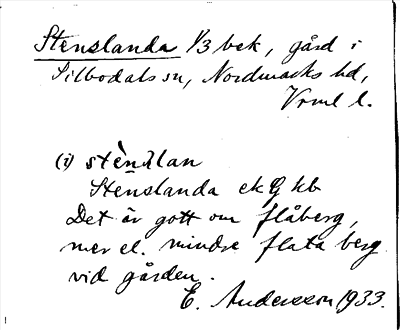 Stenslanda 1/3 bek, gård i
Silbodals sn, Nordmarks hd,
Vrml l.
(i) stènàlan
Stenslanda ek Gg kb
Det är gott om flåberg,
mer el. mindre flata berg
vid gården.
E. Andersson 1933.